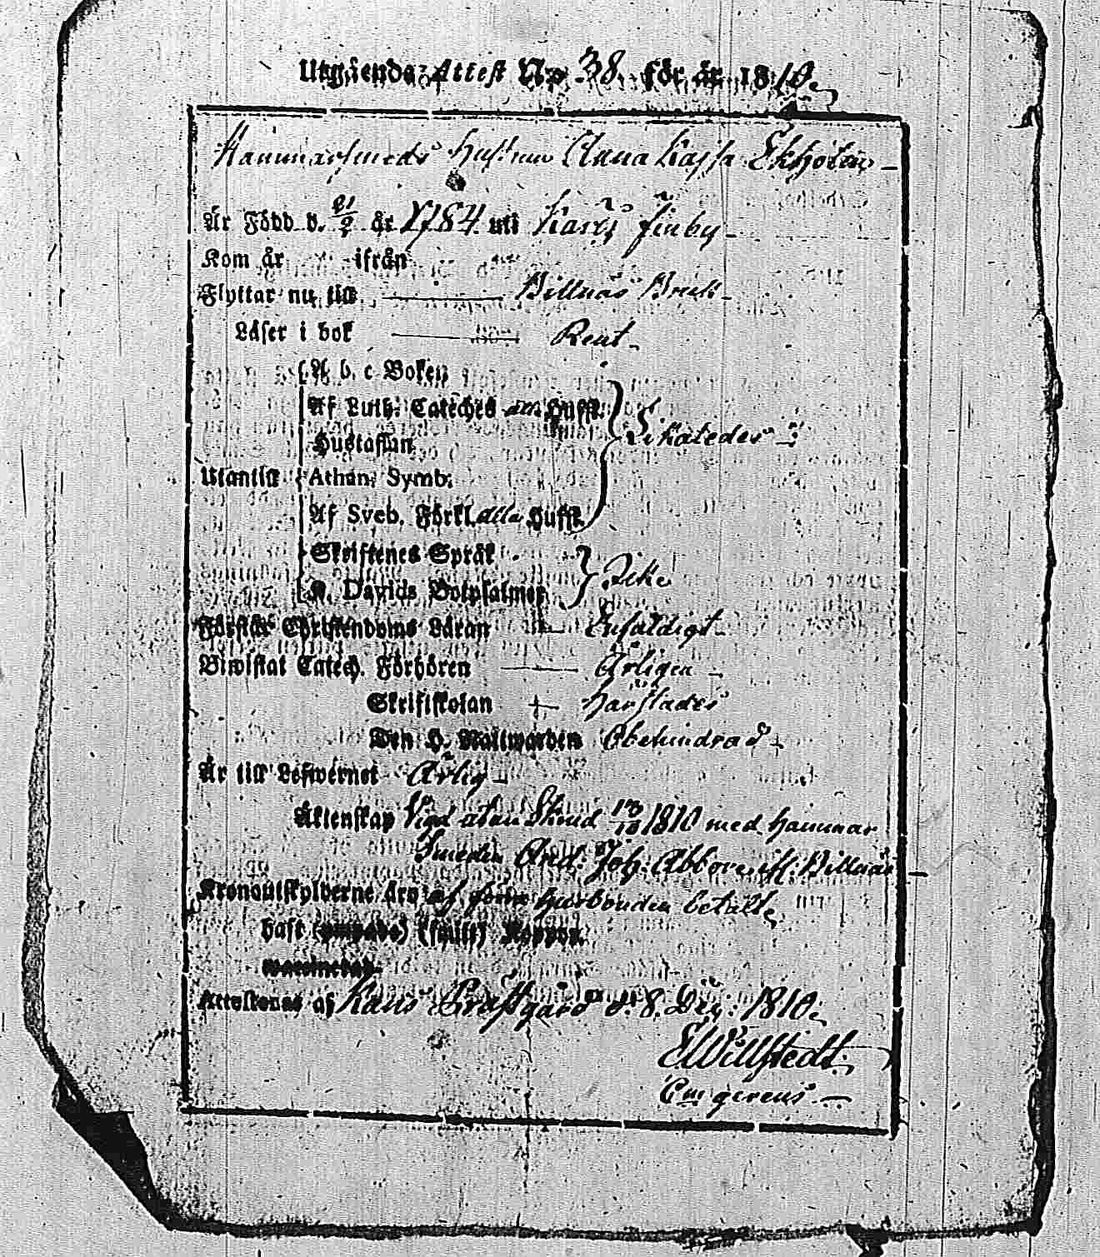 Utgående Attest No 38. för år 1810.
Hammarsmeds Hustrun Anna Kajsa Ekholm
Är Född d. 21/2 år 1784 uti Karis finby
Kom år ifrån
Flyttar nu till Billnäs Bruk
Läser i bok Rent
A b c Boken
Af Luth. Cateches alla Hufst.
Hustaflan Likaledes
Utantill Athan. Symb.
Af Sveb. Förkl. alla Hufst.
Skriftenes Språk
K. Davids Botpsalmer Icke
Förstår Christendoms Läran Enfaldigt
Biwistat Catech. Förhören Årligen
Skriftskolan härstädes
Den H. Nattwarden Obehindrad
Är till Lefwernet Ärlig
Äktenskap Vigd utan Skrud 1810 med hammar
Smeden And. Joh. Abbore ifr. Billnäs
Kronoutskylderne äro af förra husbonden betalte
haft (smitt) Koppor.
Attesteras af Karis Prästgård d. 8. Dec. 1810.
E Willstedt
C m gerens